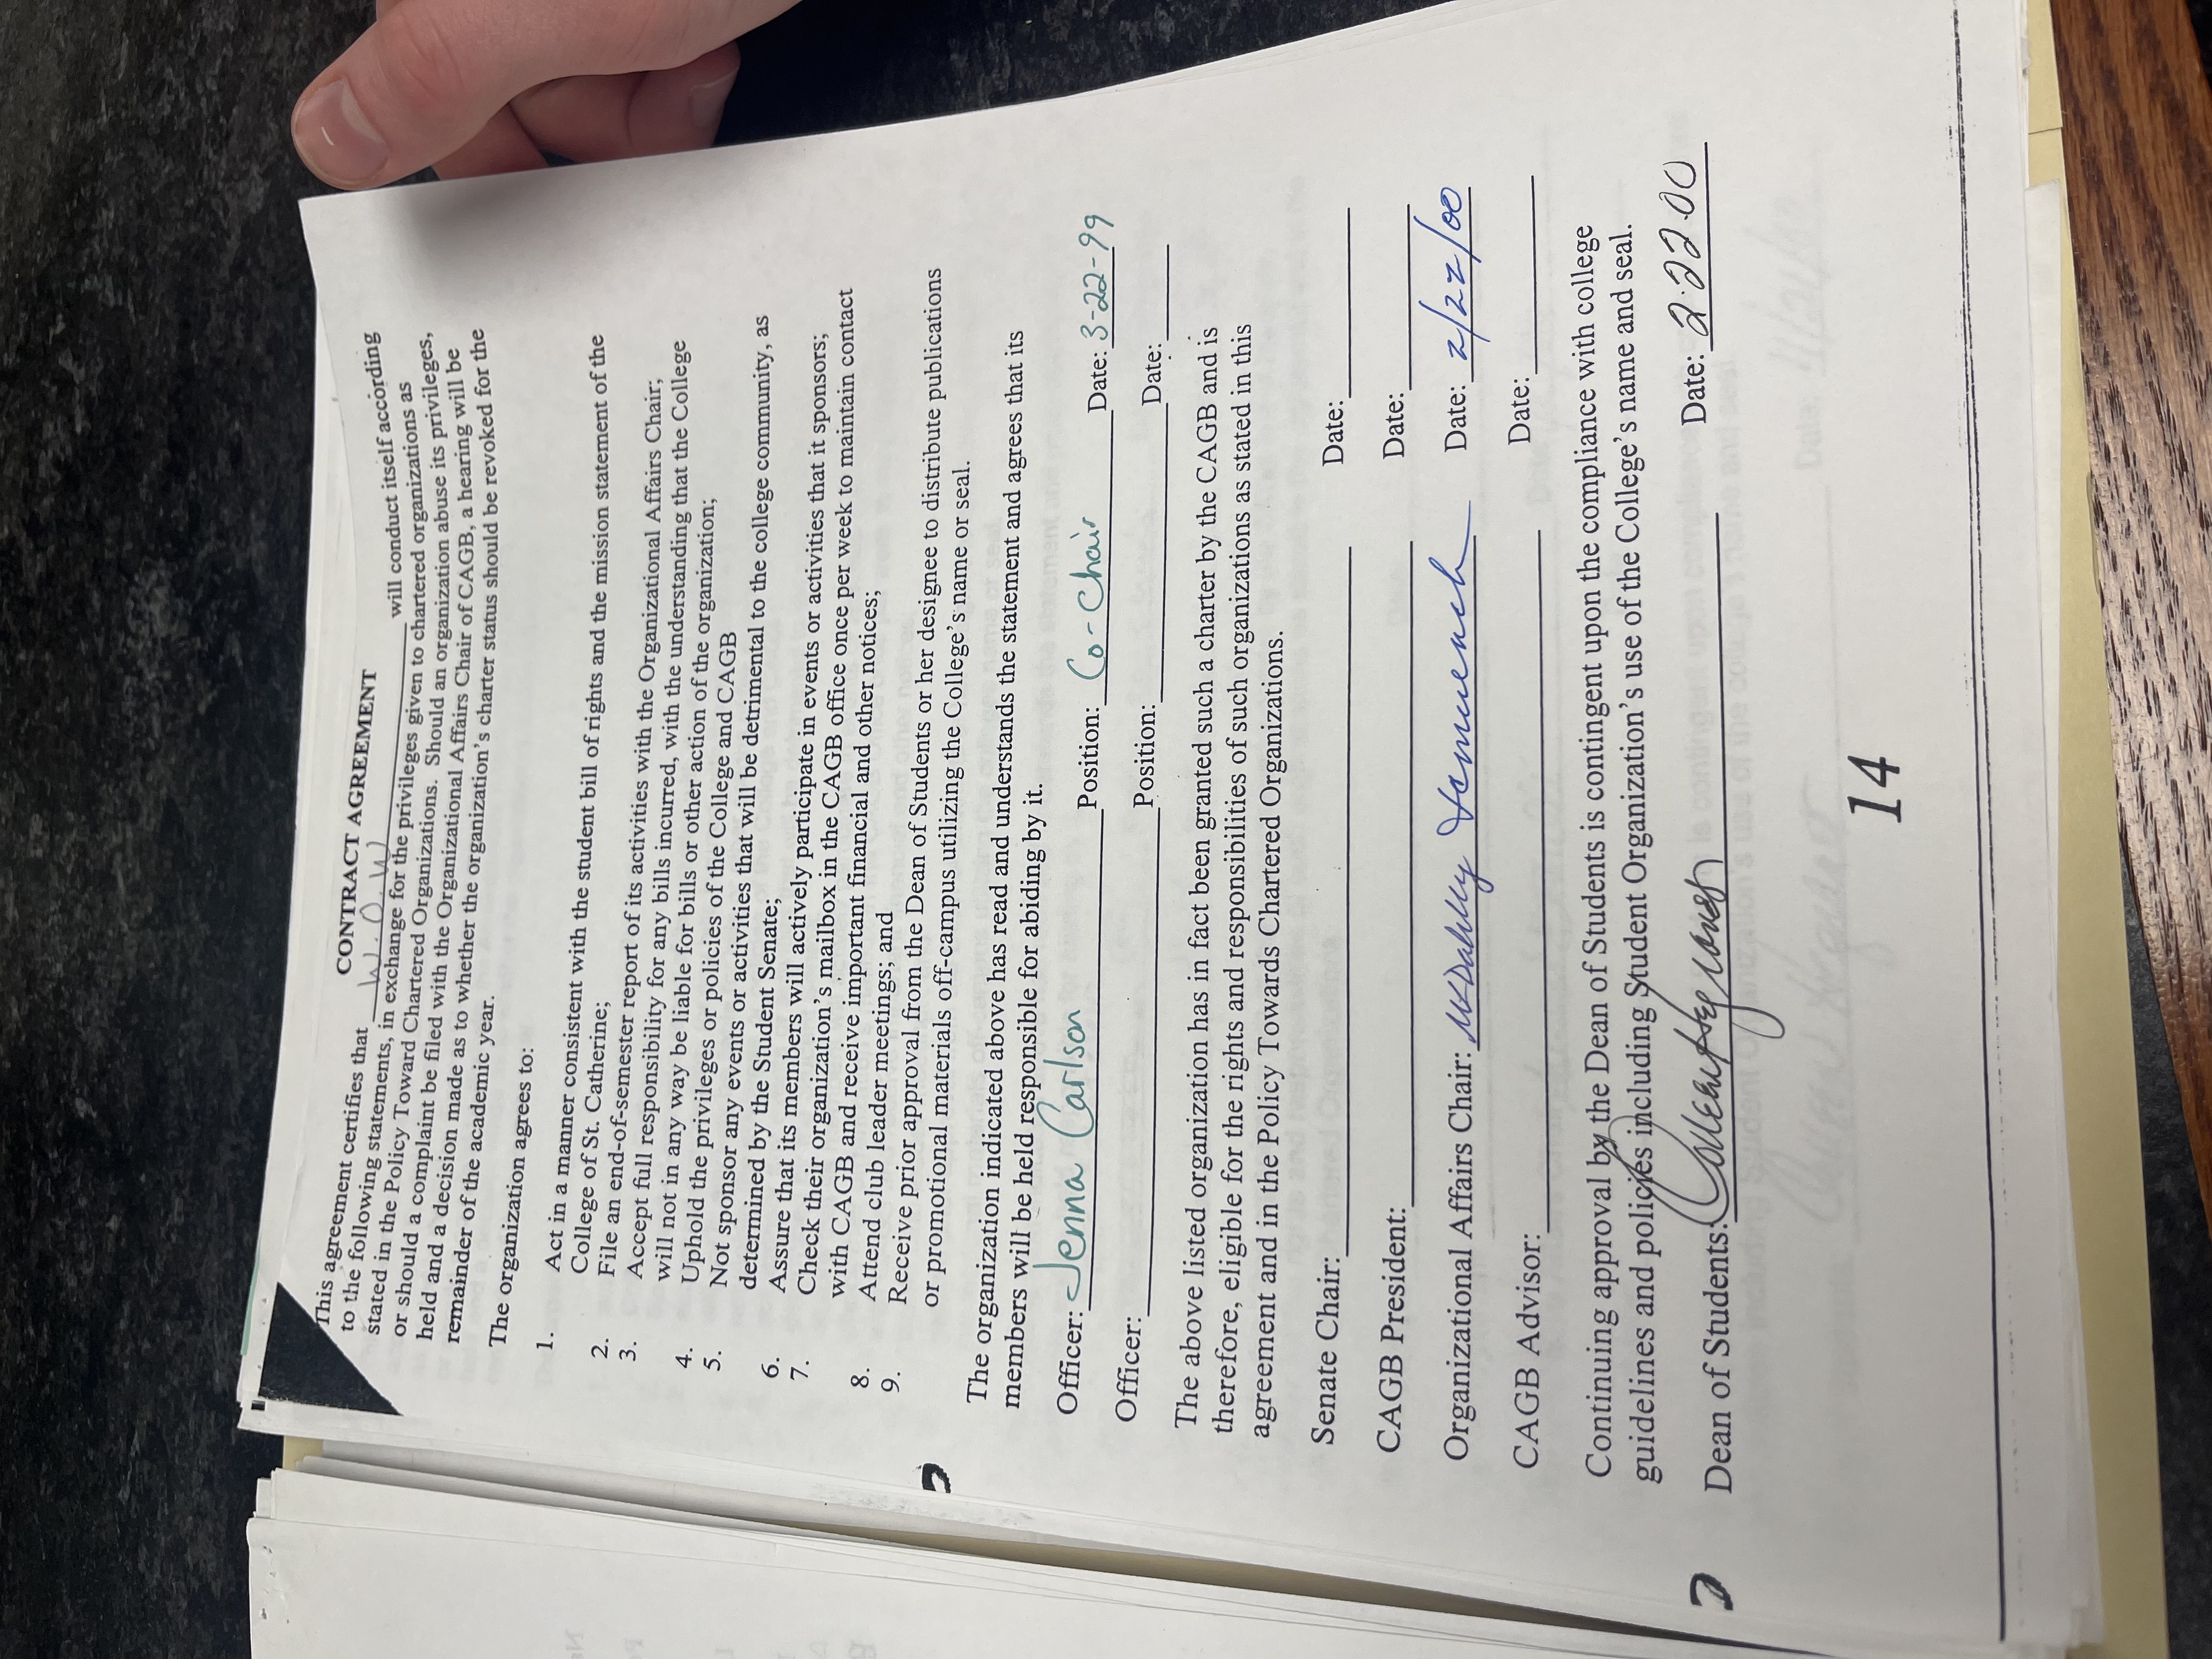 CONTRACT AGREEMENT
This agreement certifies that W.O.W will conduct itself according
to the following statements, in exchange for the privileges given to chartered organizations as
stated in the Policy Toward Chartered Organizations. Should an organization abuse its privileges,
or should a complaint be filed with the Organizational Affairs Chair of CAGB, a hearing will be
held and a decision made as to whether the organization's charter status should be revoked for the
remainder of the academic year.
The organization agrees to:
1. Act in a manner consistent with the student bill of rights and the mission statement of the
College of St. Catherine;
2. File an end-of-semester report of its activities with the Organizational Affairs Chair;
3. Accept full responsibility for any bills incurred, with the understanding that the College
will not in any way be liable for bills or other action of the organization;
4. Uphold the privileges or policies of the College and CAGB
5. Not sponsor any events or activities that will be detrimental to the college community, as
determined by the Student Senate;
6. Assure that its members will actively participate in events or activities that it sponsors;
7. Check their organization's mailbox in the CAGB office once per week to maintain contact
with CAGB and receive important financial and other notices;
8. Attend club leader meetings; and
9. Receive prior approval from the Dean of Students or her designee to distribute publications
or promotional materials off-campus utilizing the College's name or seal.
The organization indicated above has read and understands the statement and agrees that its
members will be held responsible for abiding by it.
Officer: Jenna Carlson Position: Co-Chair Date: 3-22-99
Officer: Position: Date:
The above listed organization has in fact been granted such a charter by the CAGB and is
therefore, eligible for the rights and responsibilities of such organizations as stated in this
agreement and in the Policy Towards Chartered Organizations.
Senate Chair: Date:
CAGB President: Date:
Organizational Affairs Chair: Date: 2/22/00
CAGB Advisor: Date:
Continuing approval by the Dean of Students is contingent upon the compliance with college
guidelines and policies including Student Organization's use of the College's name and seal.
Dean of Students: Colleen Hegranes Date: 2.22.00
14